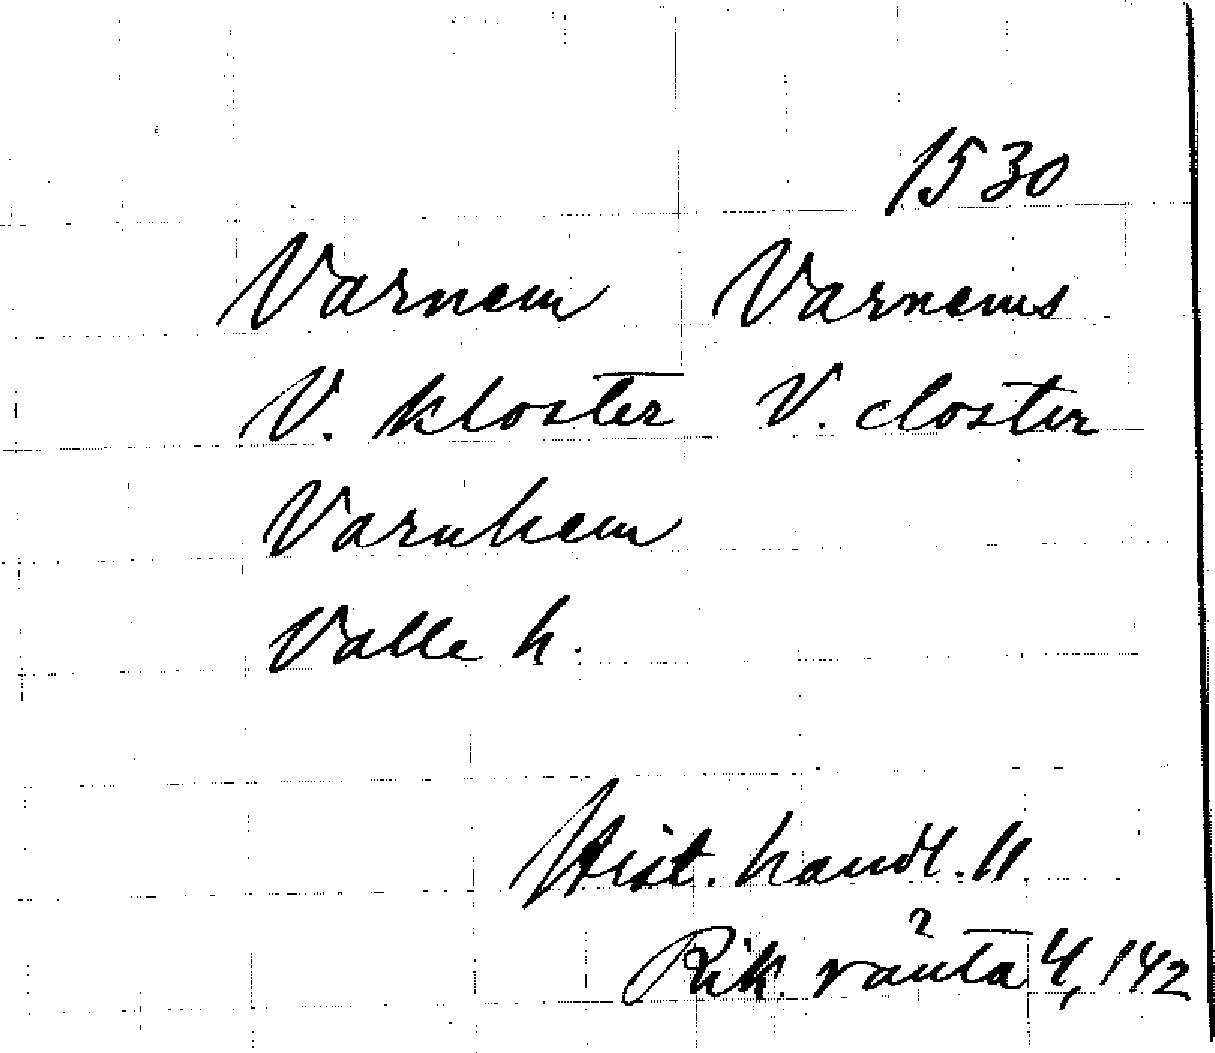 1530
Varnem Varnems
V. kloster V. closter
Varnhem
Valle h.
Hist. handl. 11.
Rik. ränta 4, 142